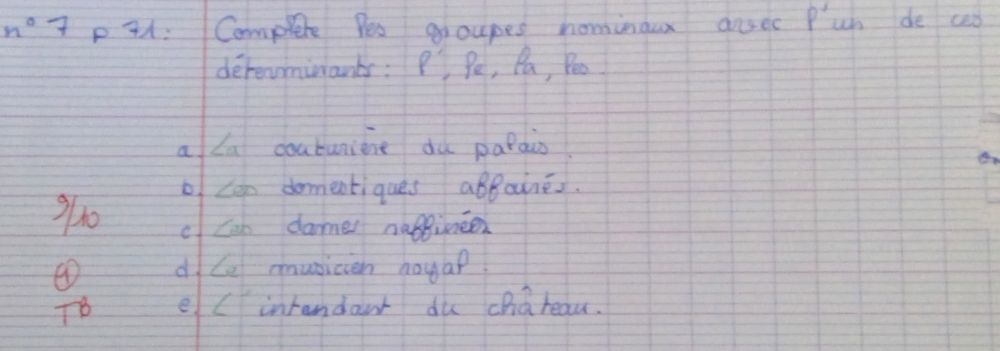 n° 7 p 71: Complète les groupes nominaux avec l'un de ces
déterminants: l', le, la, les.
a. La couturière du palais.
b. Les domestiques affairés.
9/10
c. Les dames raffinées
d. Le musicien royal.
TB
e. L'intendant du château.